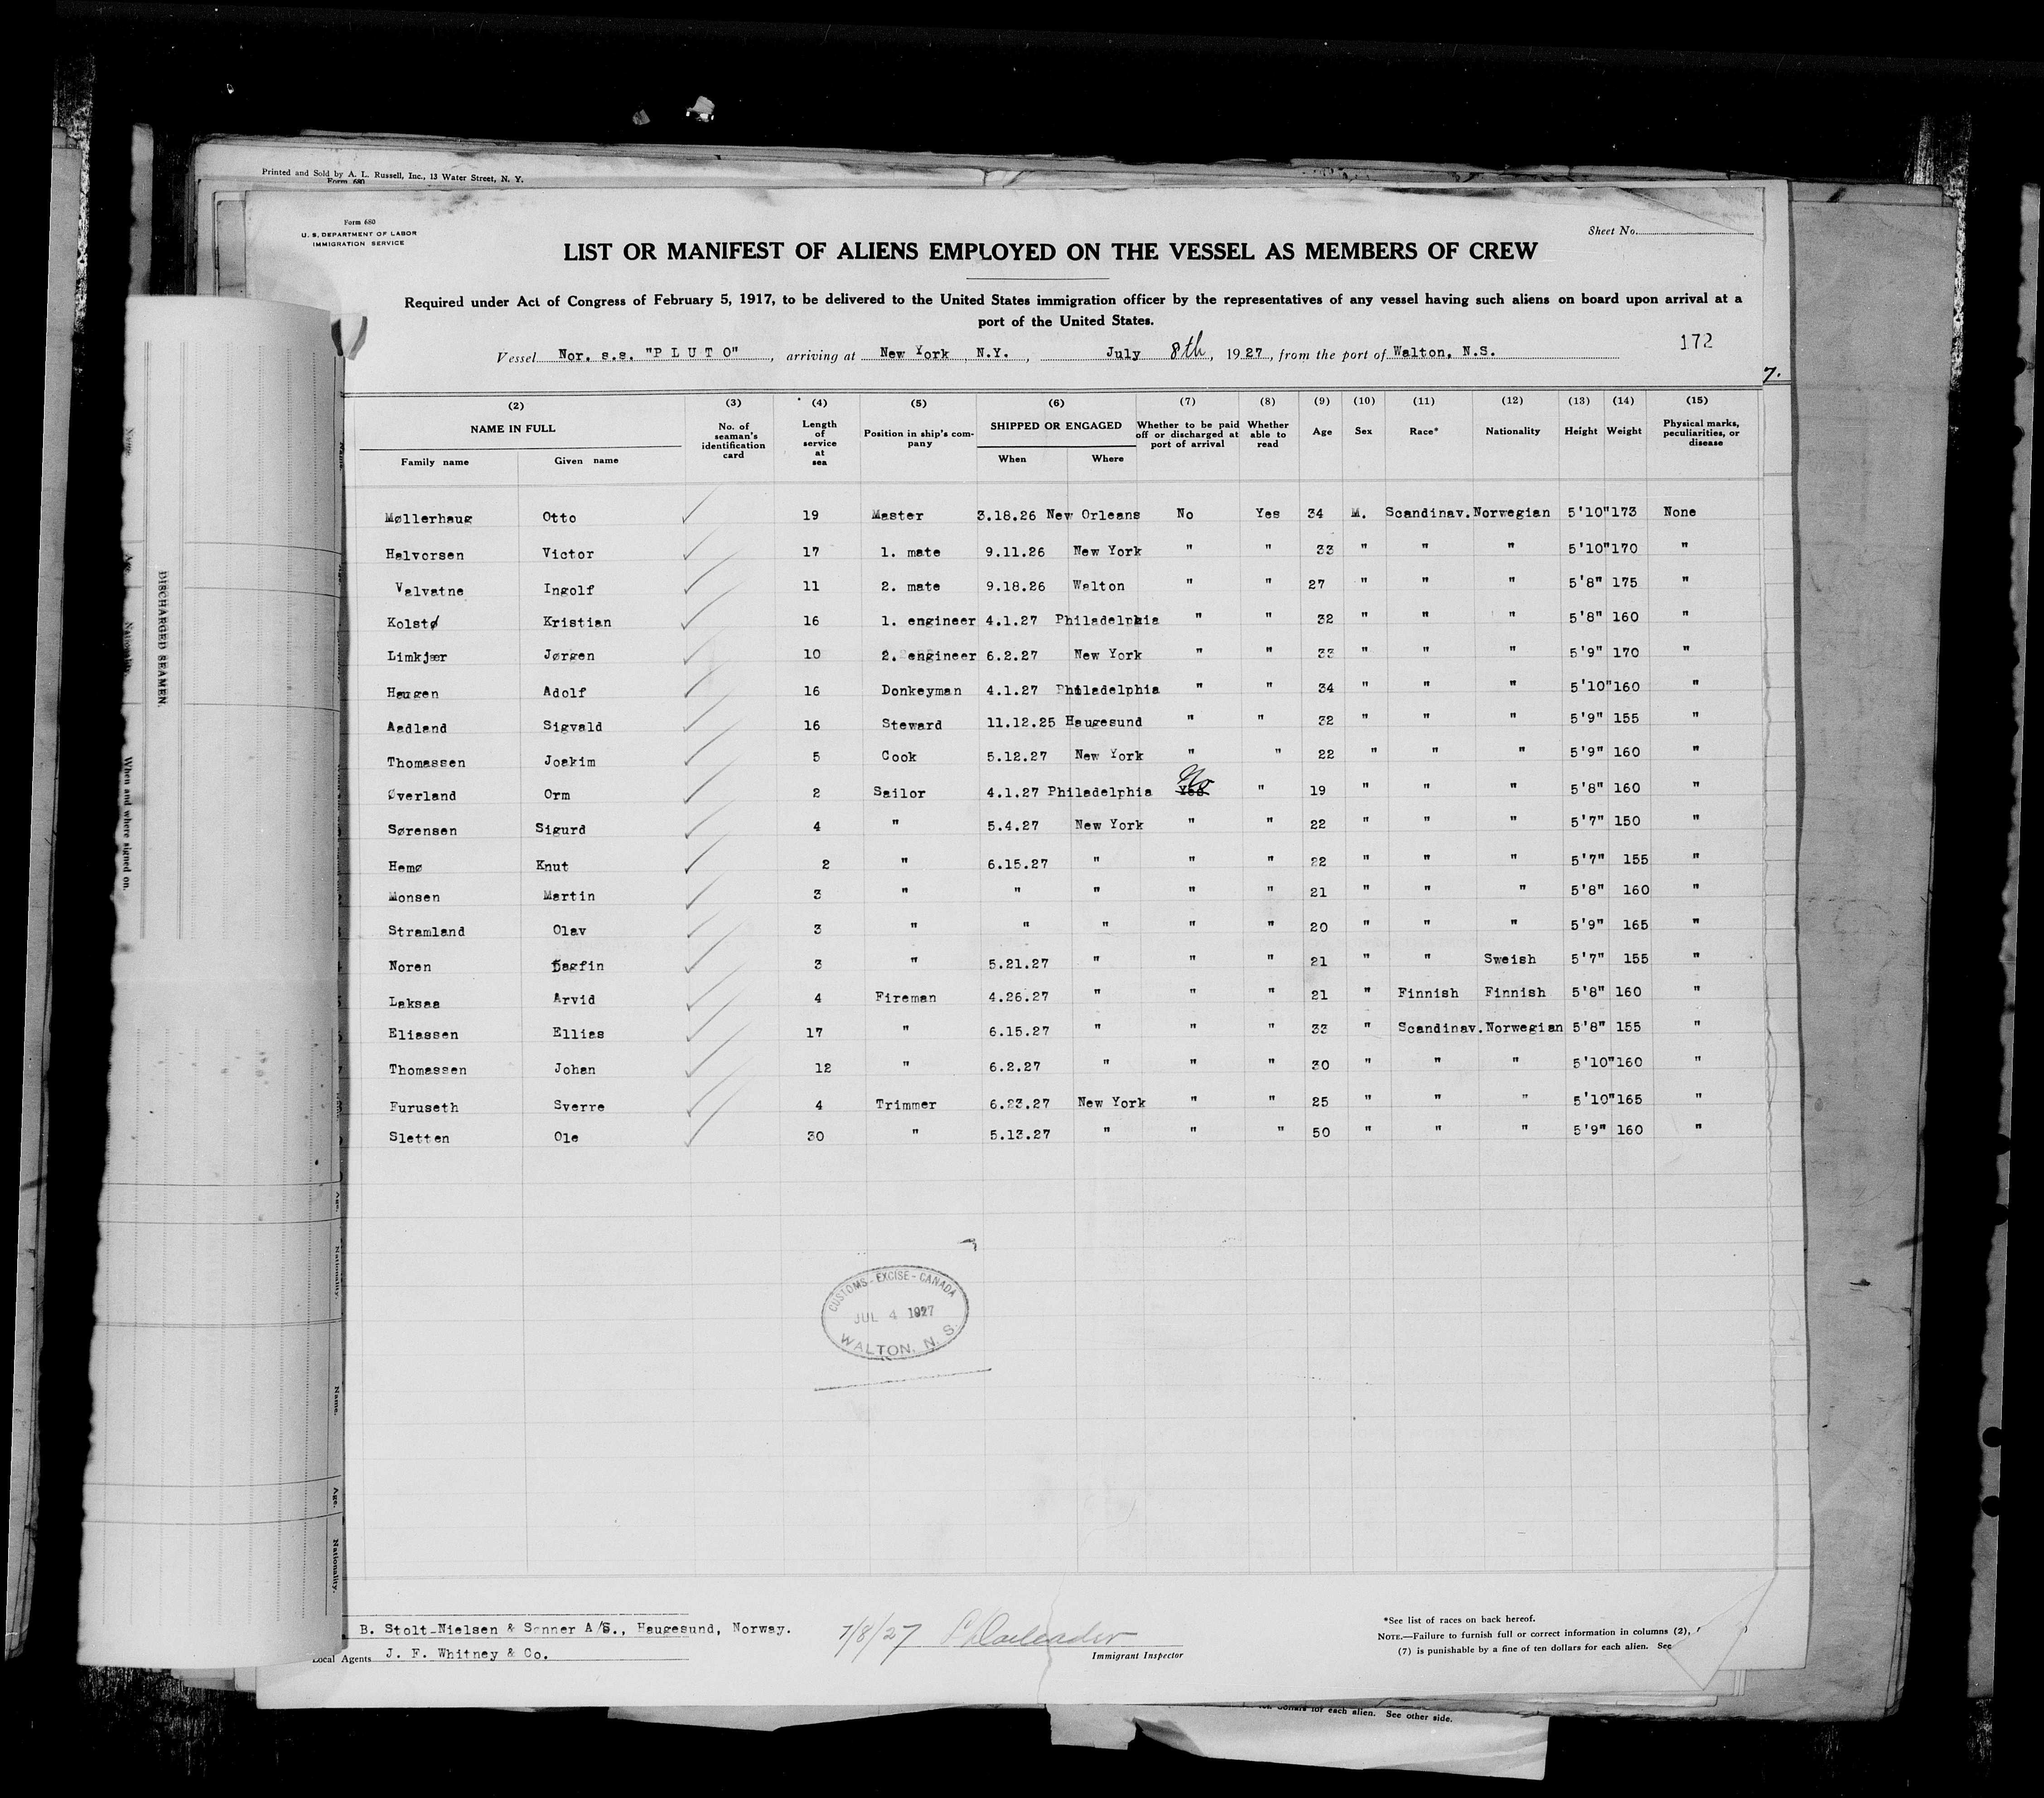 Printed and Sold by A. L. Russell, Inc., 13 Water Street, N. Y.
Form 680
Form 680
U. S. DEPARTMENT OF LABOR
IMMIGRATION SERVICE
Sheet No.
LIST OR MANIFEST OF ALIENS EMPLOYED ON THE VESSEL AS MEMBERS OF CREW
Required under Act of Congress of February 5, 1917, to be delivered to the United States immigration officer by the representatives of any vessel having such aliens on board upon arrival at a
port of the United States.
Vessel Nor. s.s. "P L U T O", arriving at New York N.Y., July 8th, 1927, from the port of Walton, N.S.
172
7.
(2) (3) (4) (5) (6) (7) (8) (9) (10) (11) (12) (13) (14) (15)
NAME IN FULL
Family name Given name
No. of seaman's identification card
Length of service at sea
Position in ship's company
SHIPPED OR ENGAGED
When Where
Whether to be paid off or discharged at port of arrival
Whether able to read
Age Sex Race* Nationality Height Weight
Physical marks, peculiarities, or disease
Møllerhaug Otto 19 Master 3.18.26 New Orleans No Yes 34 M. Scandinav. Norwegian 5'10" 173 None
Halvorsen Victor 17 1. mate 9.11.26 New York " " 33 " " " 5'10" 170 "
Valvatne Ingolf 11 2. mate 9.18.26 Walton " " 27 " " " 5'8" 175 "
Kolstø Kristian 16 1. engineer 4.1.27 Philadelphia " " 32 " " " 5'8" 160 "
Limkjær Jørgen 10 2. engineer 6.2.27 New York " " 33 " " " 5'9" 170 "
Haugen Adolf 16 Donkeyman 4.1.27 Philadelphia " " 34 " " " 5'10" 160 "
Aadland Sigvald 16 Steward 11.12.25 Haugesund " " 32 " " " 5'9" 155 "
Thomassen Joakim 5 Cook 5.12.27 New York " " 22 " " " 5'9" 160 "
Øverland Orm 2 Sailor 4.1.27 Philadelphia Yes No " 19 " " " 5'8" 160 "
Sørensen Sigurd 4 " 5.4.27 New York " " 22 " " " 5'7" 150 "
Hemø Knut 2 " 6.15.27 " " " 22 " " " 5'7" 155 "
Monsen Martin 3 " " " " " 21 " " " 5'8" 160 "
Stramland Olav 3 " " " " " 20 " " " 5'9" 165 "
Noren Dagfin 3 " 5.21.27 " " " 21 " " Sweish 5'7" 155 "
Laksaa Arvid 4 Fireman 4.26.27 " " " 21 " Finnish Finnish 5'8" 160 "
Eliassen Ellias 17 " 6.15.27 " " " 33 " Scandinav. Norwegian 5'8" 155 "
Thomassen Johan 12 " 6.2.27 " " " 30 " " " 5'10" 160 "
Furuseth Sverre 4 Trimmer 6.23.27 New York " " 25 " " " 5'10" 165 "
Sletten Ole 30 " 5.13.27 " " " 50 " " " 5'9" 160 "
CUSTOMS - EXCISE - CANADA
JUL 4 1927
WALTON, N. S.
B. Stolt-Nielsen & Sønner A/S., Haugesund, Norway.
Local Agents J. F. Whitney & Co.
7/8/27
Immigrant Inspector
*See list of races on back hereof.
NOTE.—Failure to furnish full or correct information in columns (2),
(7) is punishable by a fine of ten dollars for each alien. See
dollars for each alien. See other side.
DISCHARGED SEAMEN.
When and where signed on.
Age.
Nationality.
Name.
Age.
Nationality.